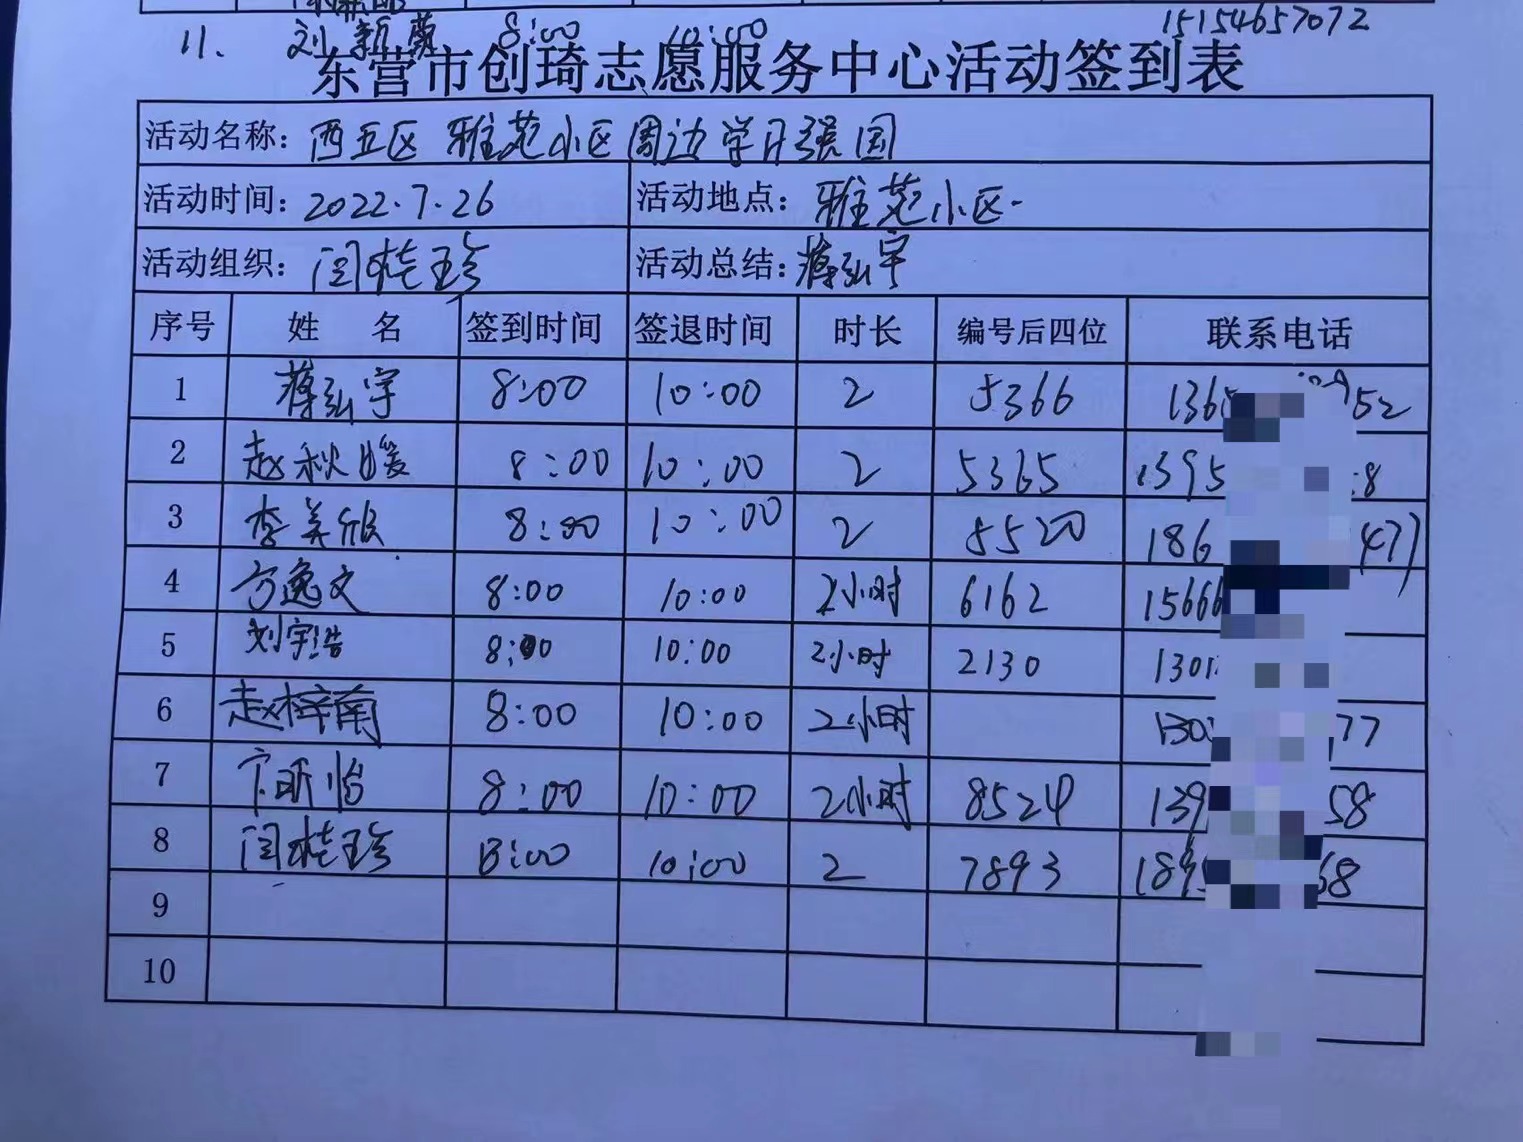 11. 刘新蕾 8:00 10:00 15154657072
东营市创琦志愿服务中心活动签到表
活动名称: 西五区 雅苑小区周边学习强国
活动时间: 2022.7.26 活动地点: 雅苑小区
活动组织: 闫桂珍 活动总结: 蒋弘宇
序号 姓 名 签到时间 签退时间 时长 编号后四位 联系电话
1 蒋弘宇 8:00 10:00 2 5366 136 52
2 赵秋媛 8:00 10:00 2 5365 1395 8
3 李美欣 8:00 10:00 2 5520 186 477
4 方逸文 8:00 10:00 2小时 6162 15666
5 刘宇浩 8:00 10:00 2小时 2130 1301
6 赵梓南 8:00 10:00 2小时 130 77
7 卞昕怡 8:00 10:00 2小时 8524 139 58
8 闫桂珍 8:00 10:00 2 7893 189 68
9
10